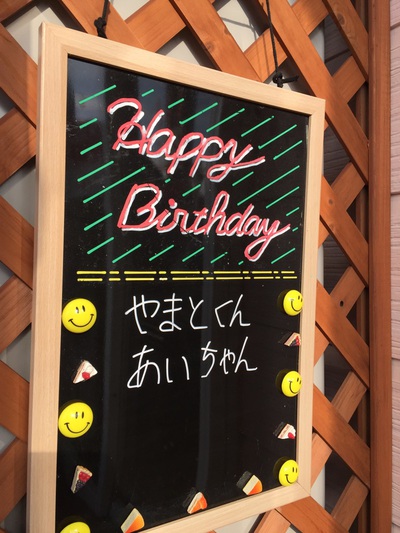 Happy
Birthday
やまとくん
あいちゃん